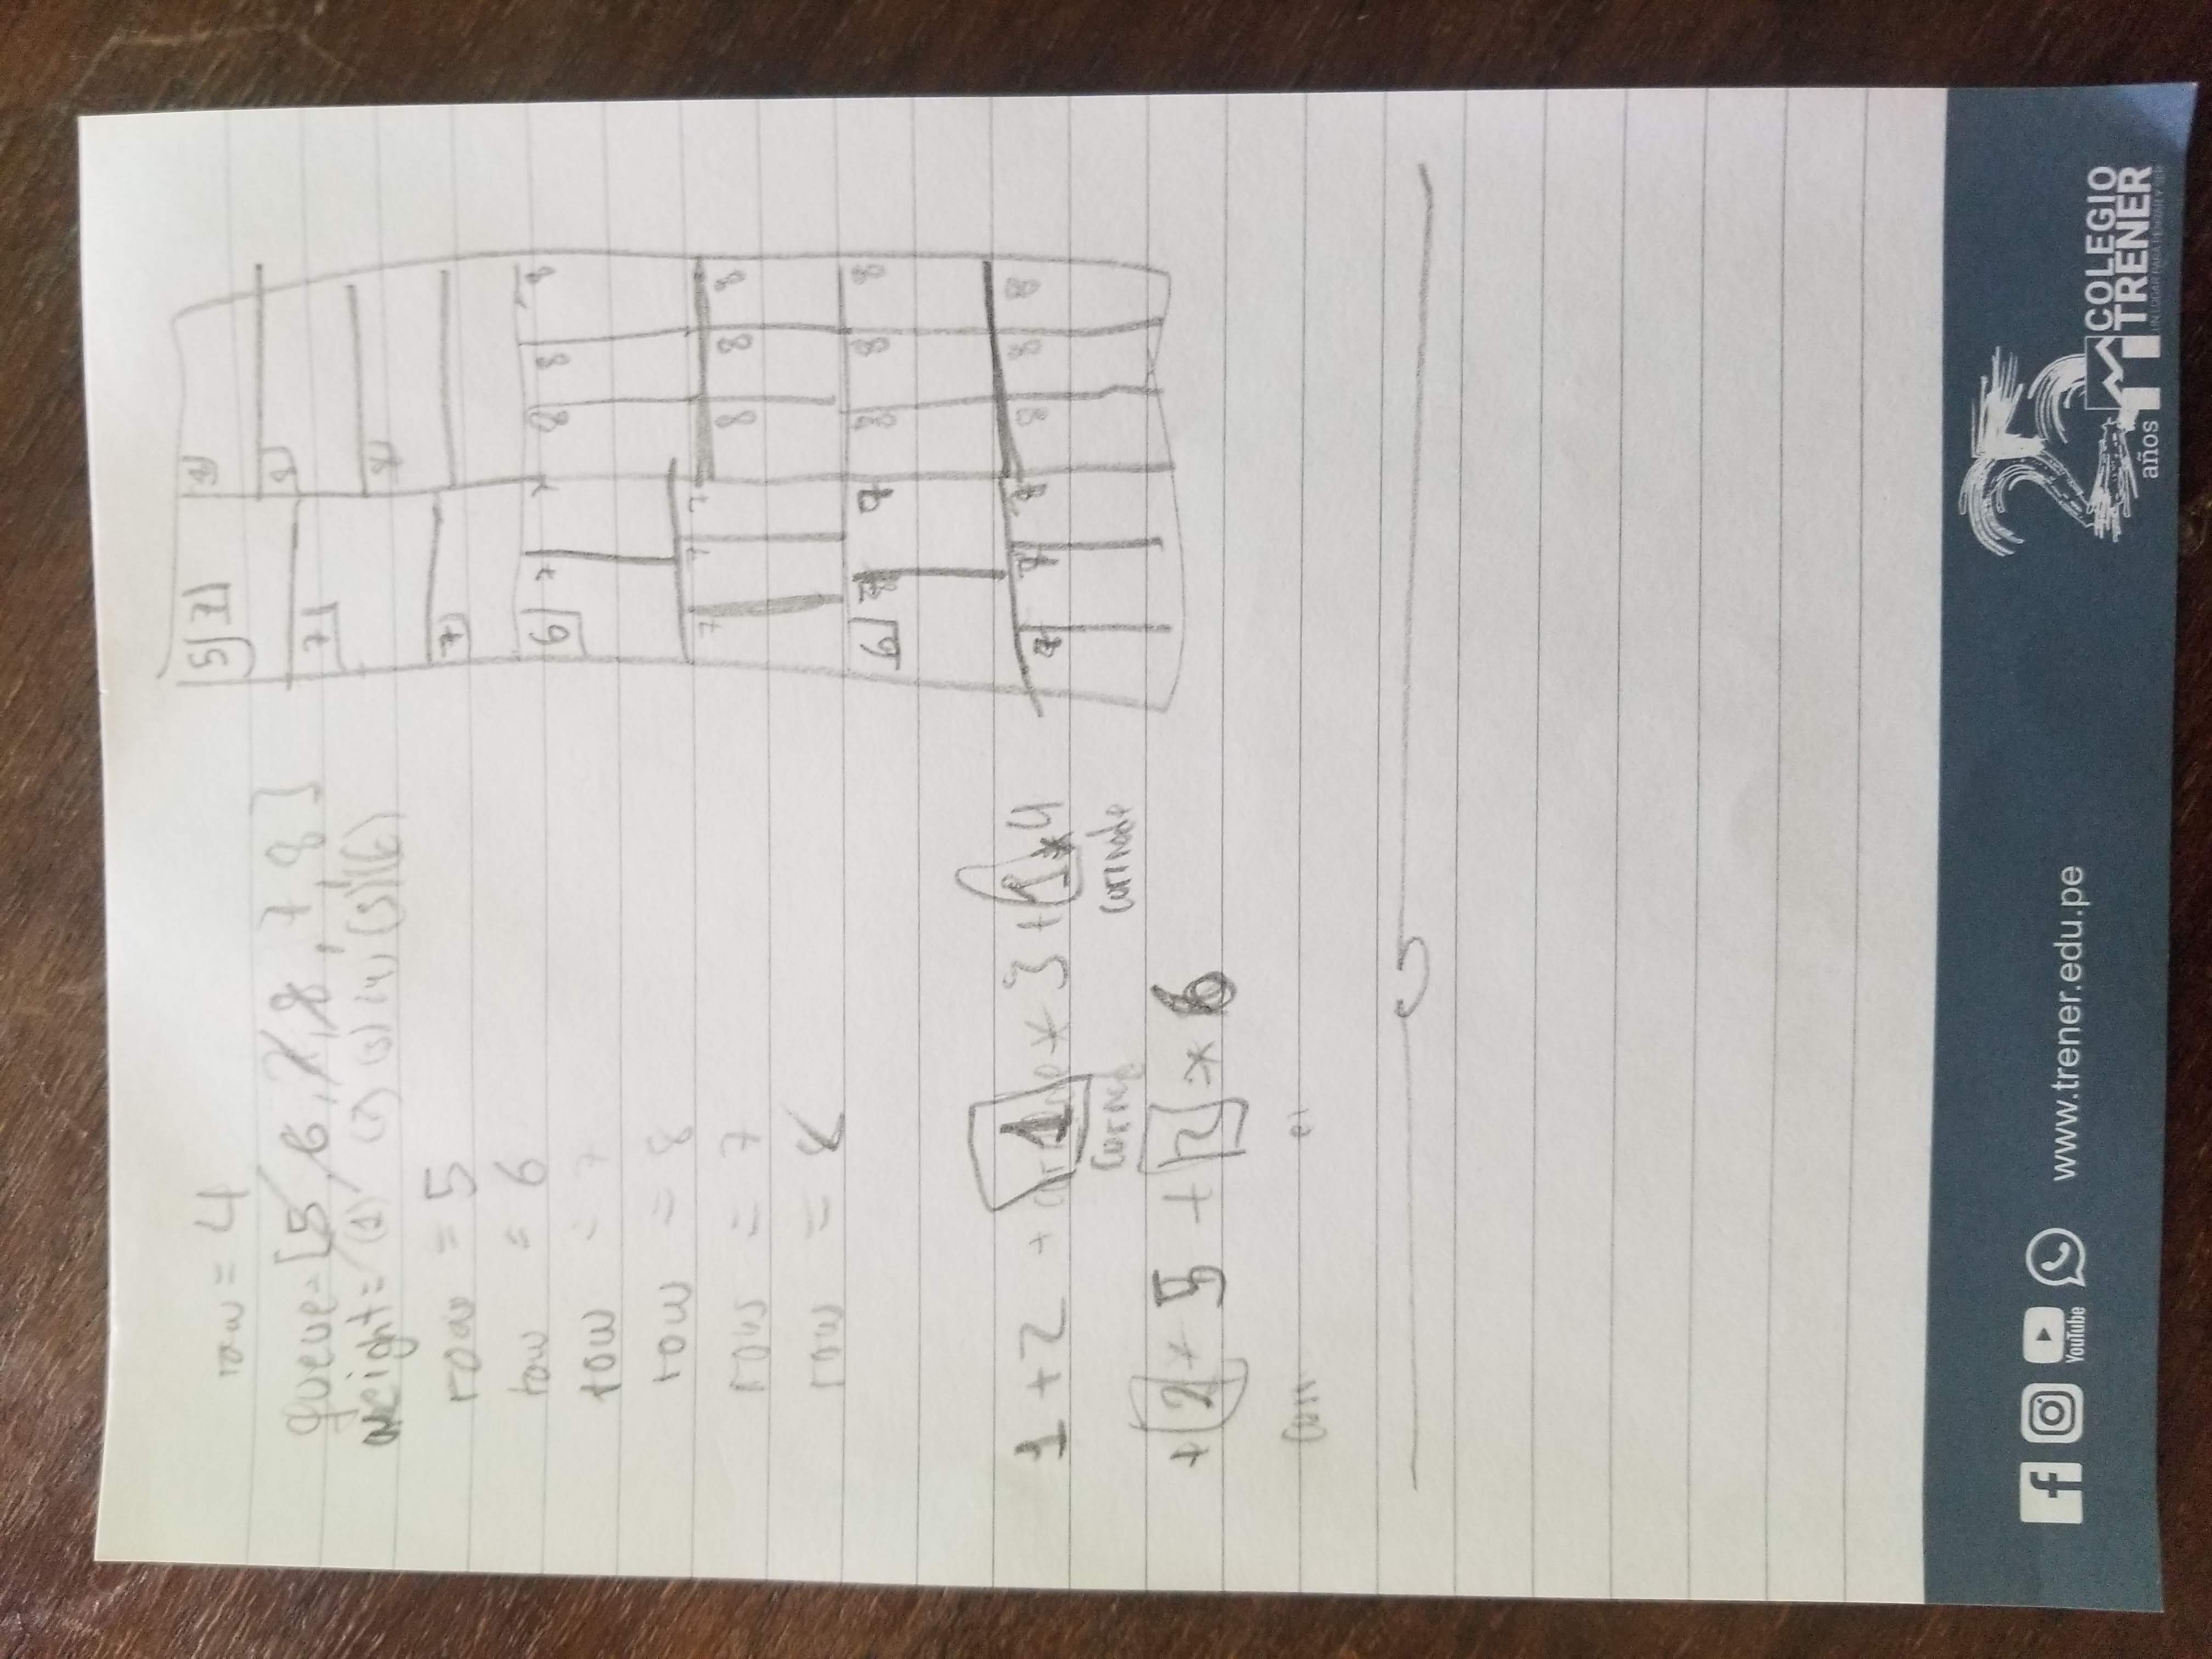 row = 4
queue = [5, 6, 7, 8, 7, 8]
weight = (1) (2) (3) (4) (5) (6)
row = 5
row = 6
row = 7
row = 8
rows = 7
row = 8
1 + 2 + 1 * 3 + 1 * 4
+ 2 * 5 + 2 * 6
5 7
7
8
7 8
6 7 7 8 8 8
7 7 7 8 8 8
6 7 8 8 8
8 8 8
YouTube
www.trener.edu.pe
25
años
COLEGIO
TRENER
UN LUGAR PARA PENSAR Y SER